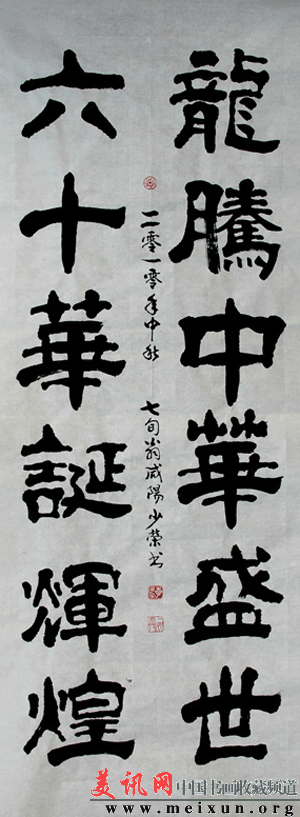 龍騰中華盛世
六十華誕輝煌
二零一零年中秋
七旬翁咸陽少榮书
美讯网中国书画收藏频道
www.meixun.org